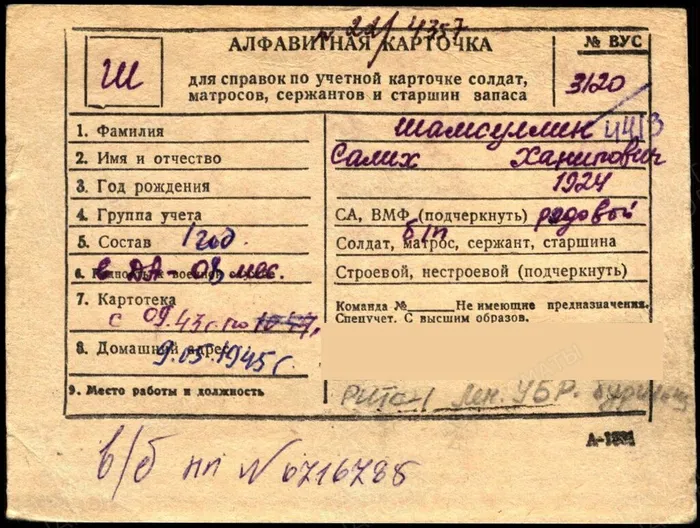 № 22/4357
АЛФАВИТНАЯ КАРТОЧКА
для справок по учетной карточке солдат,
матросов, сержантов и старшин запаса
Ш
№ ВУС
3120
1. Фамилия Шамсуллин
2. Имя и отчество Салих Ханипович
3. Год рождения 1924
4. Группа учета СА, ВМФ (подчеркнуть) рядовой
5. Состав 1 год. Солдат, матрос, сержант, старшина б/п
6. в ДА - 08 мес. Строевой, нестроевой (подчеркнуть)
7. Картотека Команда № Не имеющие предназначения.
Спецучет. С высшим образов.
с 09.43 г. по
8. Домашний адрес
9.05.1945 г.
9. Место работы и должность Лен. УБР. бурильщ
А-
в/б пп № 0716786